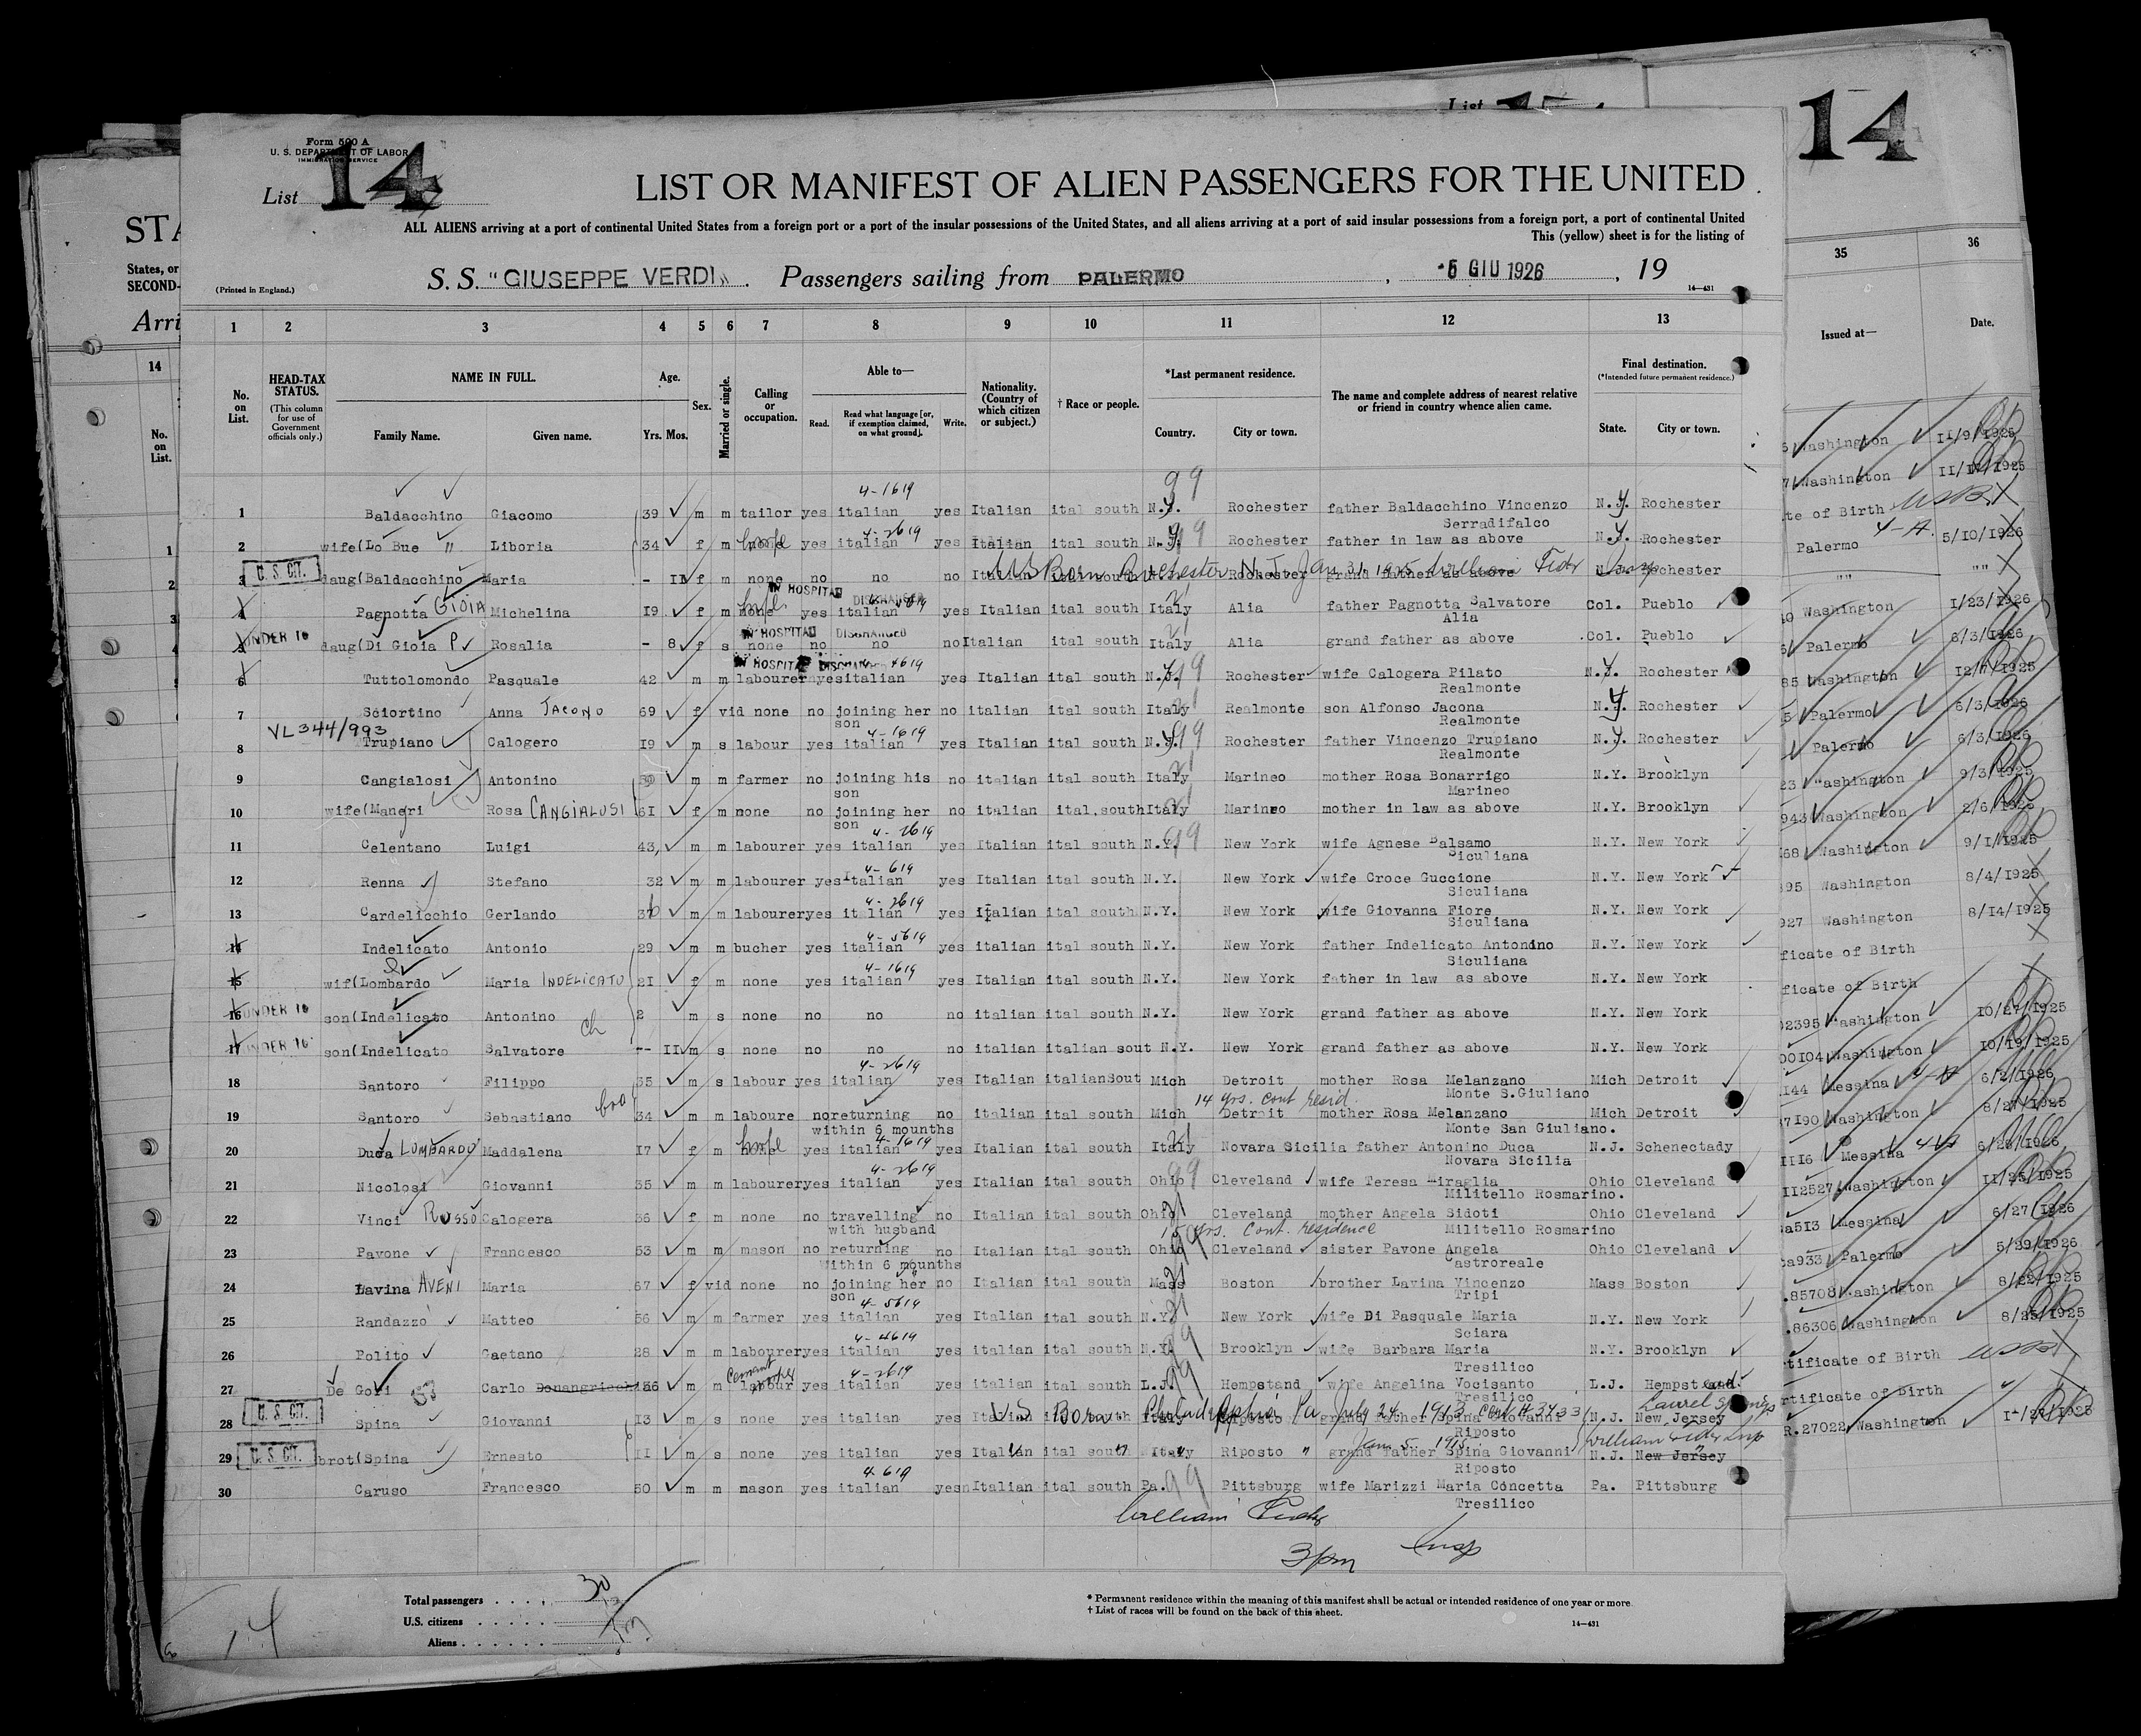 Form 500 A
U. S. DEPARTMENT OF LABOR
IMMIGRATION SERVICE
List 14
14
LIST OR MANIFEST OF ALIEN PASSENGERS FOR THE UNITED
ALL ALIENS arriving at a port of continental United States from a foreign port or a port of the insular possessions of the United States, and all aliens arriving at a port of said insular possessions from a foreign port, a port of continental United
This (yellow) sheet is for the listing of
(Printed in England.)
S. S. "GIUSEPPE VERDI". Passengers sailing from PALERMO, 5 GIU 1926, 19
14—431
STA
States, or
SECOND-
Arri
14
No. on List.
1 2 3 4 5 6 7 8 9 10 11 12 13
35 36
Issued at— Date.
No. on List.
HEAD-TAX STATUS.
(This column for use of Government officials only.)
NAME IN FULL.
Family Name. Given name.
Age.
Yrs. Mos.
Sex.
Married or single.
Calling or occupation.
Able to—
Read. Read what language [or, if exemption claimed, on what ground]. Write.
Nationality. (Country of which citizen or subject.)
† Race or people.
*Last permanent residence.
Country. City or town.
The name and complete address of nearest relative or friend in country whence alien came.
Final destination.
(*Intended future permanent residence.)
State. City or town.
4-1619 99
1 Baldacchino Giacomo 39 m m tailor yes italian yes Italian ital south N.Y. Rochester father Baldacchino Vincenzo N.Y. Rochester
Serradifalco
4-2619
2 wife(Lo Bue " Liboria 34 f m yes italian yes Italian ital south N.Y. Rochester father in law as above N.Y. Rochester
U. S. CIT.
US Born Rochester N.Y. Jan 31 1925 William
3 daug(Baldacchino Maria - II f m none no no no Italian Rochester grand father as above Rochester
IN HOSPITAL DISCHARGED
4 Pagnotta GIOIA Michelina I9 f m none yes italian yes Italian ital south Italy Alia father Pagnotta Salvatore Col. Pueblo
Alia
UNDER 16
IN HOSPITAL DISCHARGED
5 daug(Di Gioia P Rosalia - 8 f s none no no no Italian ital south Italy Alia grand father as above Col. Pueblo
IN HOSPITAL DISCHARGED 4619
6 Tuttolomondo Pasquale 42 m m labourer yes italian yes Italian ital south N.Y. Rochester wife Calogera Pilato N.Y. Rochester
Realmonte
7 Sciortino Anna JACONO 69 f vid none no joining her no italian ital south Italy Realmonte son Alfonso Jacona N.Y. Rochester
son Realmonte
VL344/993
4-1619
8 Trupiano Calogero I9 m s labour yes italian yes Italian ital south N.Y. Rochester father Vincenzo Trupiano N.Y. Rochester
Realmonte
9 Cangialosi Antonino m m farmer no joining his no italian ital south Italy Marineo mother Rosa Bonarrigo N.Y. Brooklyn
son Marineo
10 wife(Mangri Rosa CANGIALUSI 6I f m none no joining her no italian ital.south Italy Marineo mother in law as above N.Y. Brooklyn
son 4-2619
11 Celentano Luigi 43, m m labourer yes italian yes Italian ital south N.Y. New York wife Agnese Balsamo N.Y. New York
Siculiana
4-619
12 Renna Stefano 32 m m labourer yes Italian yes Italian ital south N.Y. New York wife Croce Guccione N.Y. New York
Siculiana
4-2619
13 Cardelicchio Gerlando m m labourer yes italian yes Italian ital south N.Y. New York wife Giovanna Fiore N.Y. New York
Siculiana
4-5619
14 Indelicato Antonio 29 m m bucher yes italian yes italian ital south N.Y. New York father Indelicato Antonino N.Y. New York
Siculiana
4-1619
15 wif(Lombardo Maria INDELICATO 2I f m none yes italian yes Italian ital south N.Y. New York father in law as above N.Y. New York
UNDER 16
16 son(Indelicato Antonino 2 m s none no no no italian ital south N.Y. New York grand father as above N.Y. New York
ch
UNDER 16
17 son(Indelicato Salvatore -- II m s none no no no italian italian sout N.Y. New York grand father as above N.Y. New York
4-2619
18 Santoro Filippo 35 m s labour yes italian yes Italian italianSout Mich Detroit mother Rosa Melanzano Mich Detroit
14 yrs. cont resid. Monte S.Giuliano
19 Santoro Sebastiano bro 34 m m laboure no returning no italian ital south Mich Detroit mother Rosa Melanzano Mich Detroit
within 6 mounths Monte San Giuliano.
4-1619
20 Duca LOMBARDO Maddalena I7 f m none yes italian yes Italian ital south Italy Novara Sicilia father Antonino Duca N.J. Schenectady
Novara Sicilia
4-2619
21 Nicolosi Giovanni 35 m m labourer yes italian yes Italian ital south Ohio Cleveland wife Teresa Miraglia Ohio Cleveland
Militello Rosmarino.
22 Vinci RUSSO Calogera 36 f m none no travelling no Italian ital south Ohio Cleveland mother Angela Sidoti Ohio Cleveland
with husband yrs. cont. residence Militello Rosmarino
23 Pavone Francesco 53 m m mason no returning no Italian ital south Ohio Cleveland sister Pavone Angela Ohio Cleveland
Within 6 mounths Castroreale
24 Lavina AVENI Maria 67 f vid none no joining her no Italian ital south Mass Boston brother Lavina Vincenzo Mass Boston
son Tripi
4-5619
25 Randazzo Matteo 56 m m farmer yes italian yes Italian ital south N.Y. New York wife Di Pasquale Maria N.Y. New York
Sciara
4-4619
26 Polito Gaetano 28 m m labourer yes italian yes italian ital south N.Y. Brooklyn wife Barbara Maria N.Y. Brooklyn
Tresilico
Cement worker 4-2619
27 De Gori Carlo Donangricchi 36 m m labour yes italian yes italian ital south L.J. Hempstand wife Angelina Vocisanto L.J. Hempstead
Tresilico
U. S. CIT.
US Born Philadelphia Pa July 24 1913 Laurel Springs
28 Spina Giovanni I3 m s none yes italian yes Italian ital south Italy Riposto grand father Spina Giovanni N.J. New Jersey
Riposto
U. S. CIT.
Jan 5 1915
29 brot(Spina Ernesto II m s none yes italian yes Italian ital south Italy Riposto " grand father Spina Giovanni N.J. New Jersey
Riposto
4-619
30 Caruso Francesco 50 m m mason yes italian yes Italian ital south Pa. 99 Pittsburg wife Marizzi Maria Concetta Pa. Pittsburg
Tresilico
William
3 pm Insp
Total passengers 30
U.S. citizens
Aliens
14
* Permanent residence within the meaning of this manifest shall be actual or intended residence of one year or more.
† List of races will be found on the back of this sheet.
14—431
Washington II/9/1925
Washington II/17/1925
te of Birth
Palermo 4-A. 5/10/1926
"" ""
Washington I/23/1926
Palermo 6/3/1926
85 Washington I2/7/1925
Palermo 6/3/1926
Palermo 6/3/1926
23 Washington 9/3/1925
943 Washington 2/6/1925
68 Washington 9/I/1925
895 Washington 8/4/1925
927 Washington 8/I4/1925
ficate of Birth
ficate of Birth
2395 Washington I0/27/1925
00I04 Washington I0/I9/1925
II44 Messina 6/2/1926
7I90 Washington 8/27/1925
III6 Messina 6/26/1926
II2527 Washington II/25/1925
a5I3 Messina 6/27/1926
a933 Palermo 5/29/1926
.85708 Washington 8/22/1925
.86306 Washington 8/25/1925
rtificate of Birth
rtificate of Birth
R.27022 Washington